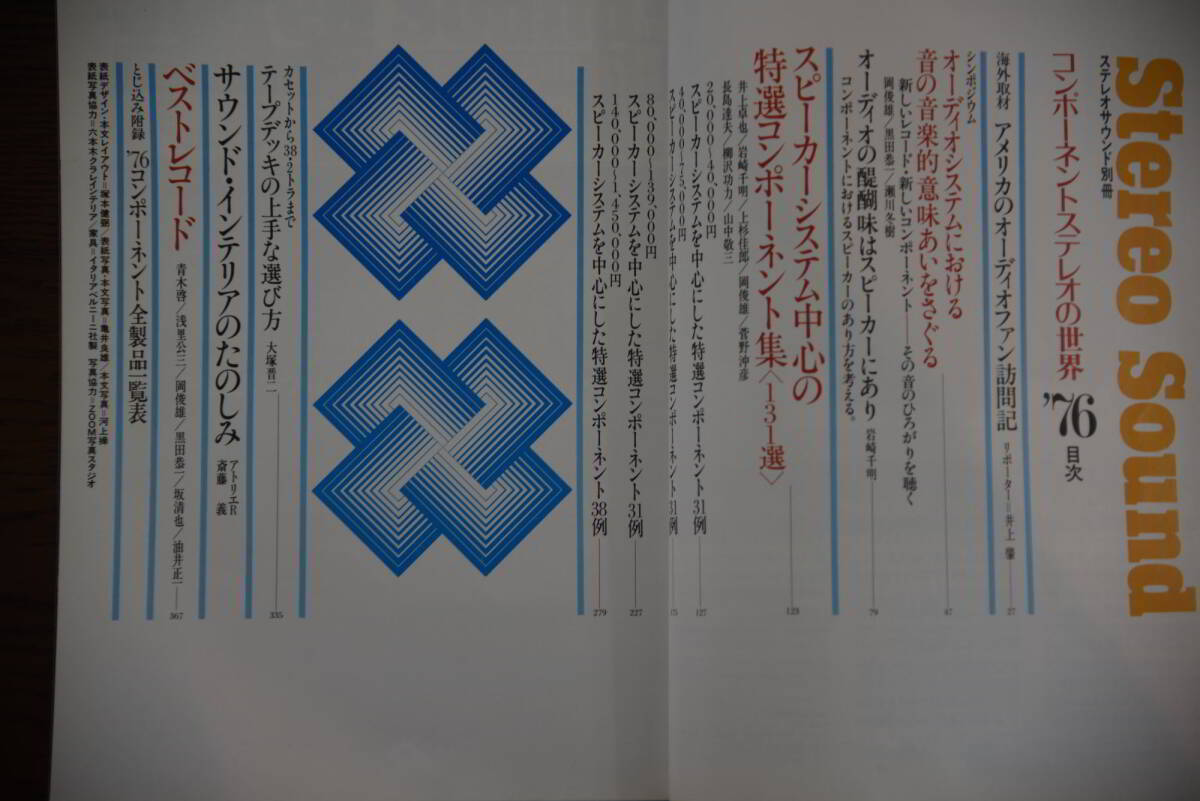 Stereo Sound
ステレオサウンド別冊
コンポーネントステレオの世界 '76 目次
海外取材 アメリカのオーディオファン訪問記 リポーター=井上 肇 27
シンポジウム
オーディオシステムにおける
音の音楽的意味あいをさぐる 47
新しいレコード・新しいコンポーネント——その音のひろがりを聴く
岡俊雄/黒田恭一/瀬川冬樹
オーディオの醍醐味はスピーカーにあり 岩崎千明 79
コンポーネントにおけるスピーカーのあり方を考える。
スピーカーシステム中心の
特選コンポーネント集〈131選〉 123
井上卓也/岩崎千明/上杉佳郎/岡俊雄/菅野沖彦
長島達夫/柳沢功力/山中敬三
20,000〜40,000円
スピーカーシステムを中心にした特選コンポーネント31例 127
40,000〜75,000円
スピーカーシステムを中心にした特選コンポーネント31例
80,000〜139,000円
スピーカーシステムを中心にした特選コンポーネント31例 227
140,000〜1,450,000円
スピーカーシステムを中心にした特選コンポーネント38例 279
カセットから38・2トラまで
テープデッキの上手な選び方 大塚晋二 335
サウンド・インテリアのたのしみ アトリエR 斎藤 義
ベストレコード 青木啓/浅里公三/岡俊雄/黒田恭一/坂清也/油井正一 367
とじ込み附録 '76コンポーネント全製品一覧表
表紙デザイン・本文レイアウト=塚本健弼/表紙写真・本文写真=亀井良雄/本文写真=河上操
表紙写真協力=六本木クラレインテリア/家具=イタリアベルニーニ社製 写真協力=ZOOM写真スタジオ